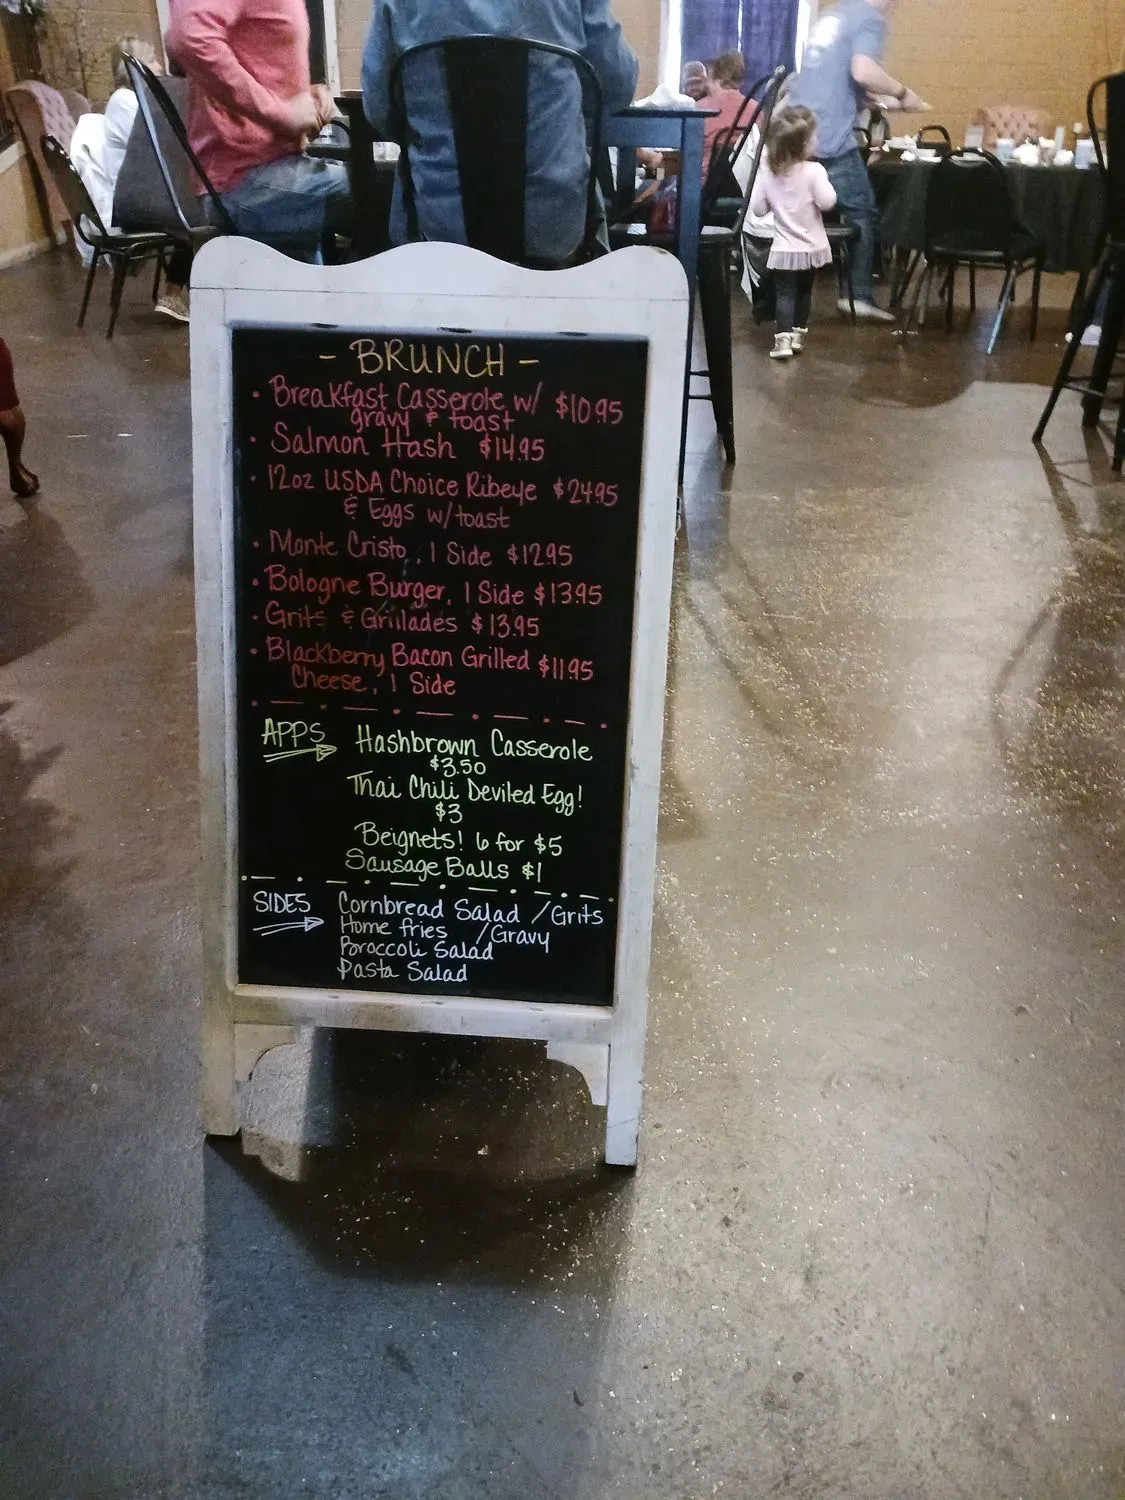 - BRUNCH -
• Breakfast Casserole w/ $10.95
gravy & toast
• Salmon Hash $14.95
• 12oz USDA Choice Ribeye $24.95
& Eggs w/toast
• Monte Cristo, 1 Side $12.95
• Bologne Burger, 1 Side $13.95
• Grits & Grillades $13.95
• Blackberry Bacon Grilled $11.95
Cheese, 1 Side
APPS Hashbrown Casserole
$3.50
Thai Chili Deviled Egg!
$3
Beignets! 6 for $5
Sausage Balls $1
SIDES Cornbread Salad /Grits
Home fries /Gravy
Broccoli Salad
Pasta Salad